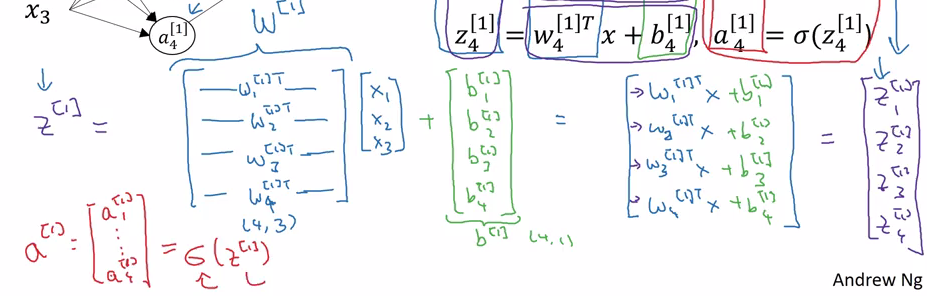 x₃
a₄^[1]
W^[1]
z₄^[1] = w₄^[1]T x + b₄^[1], a₄^[1] = σ(z₄^[1])
z^[1] = [ — w₁^[1]T — ; — w₂^[1]T — ; — w₃^[1]T — ; — w₄^[1]T — ] [ x₁ ; x₂ ; x₃ ] + [ b₁^[1] ; b₂^[1] ; b₃^[1] ; b₄^[1] ] = [ → w₁^[1]T x + b₁^[1] ; → w₂^[1]T x + b₂^[1] ; → w₃^[1]T x + b₃^[1] ; → w₄^[1]T x + b₄^[1] ] = [ z₁^[1] ; z₂^[1] ; z₃^[1] ; z₄^[1] ]
(4,3)
b^[1] (4,1)
a^[1] = [ a₁^[1] ; ⋮ ; a₄^[1] ] = σ(z^[1])
Andrew Ng